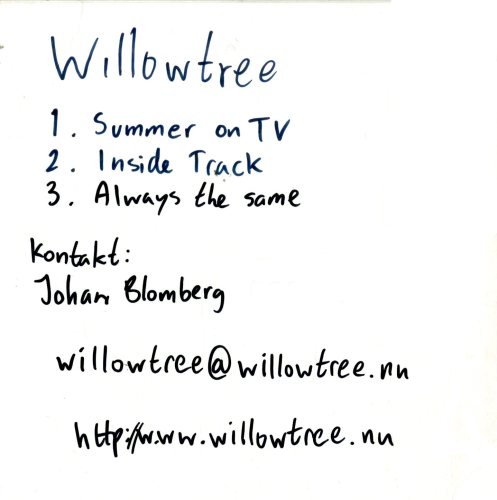 Willowtree
1. Summer on TV
2. Inside Track
3. Always the same
Kontakt:
Johan Blomberg
willowtree@willowtree.nu
http://www.willowtree.nu